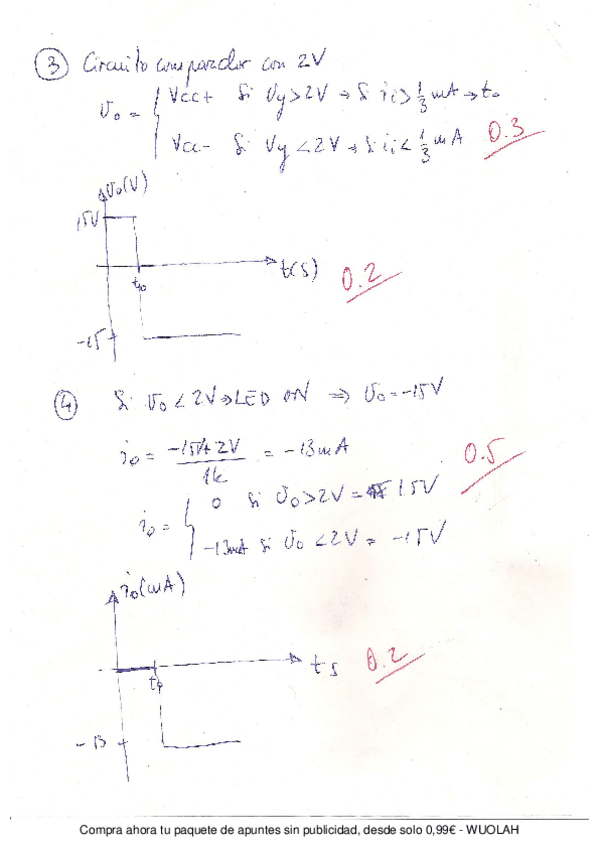 3 Circuito comparador con 2V
Vo = { Vcc+ Si Vy > 2V → Si ii > 1/3 mA → to
Vcc- Si Vy < 2V → Si ii < 1/3 mA 0.3
Vo(V)
15V
to t(s) 0.2
-15
4 Si Vo < 2V → LED ON ⇒ Vo = -15V
io = (-15V + 2V) / 1k = -13mA 0.5
io = { 0 Si Vo > 2V = 15V
-13mA Si Vo < 2V = -15V
io(mA)
t s 0.2
-13
Compra ahora tu paquete de apuntes sin publicidad, desde solo 0,99€ - WUOLAH